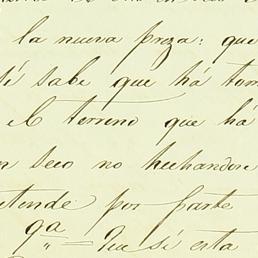 la nueva preza: que
si sabe que há tom
el terreno que há
n seco no hechandose
etende por parte
9ª = Que si esta